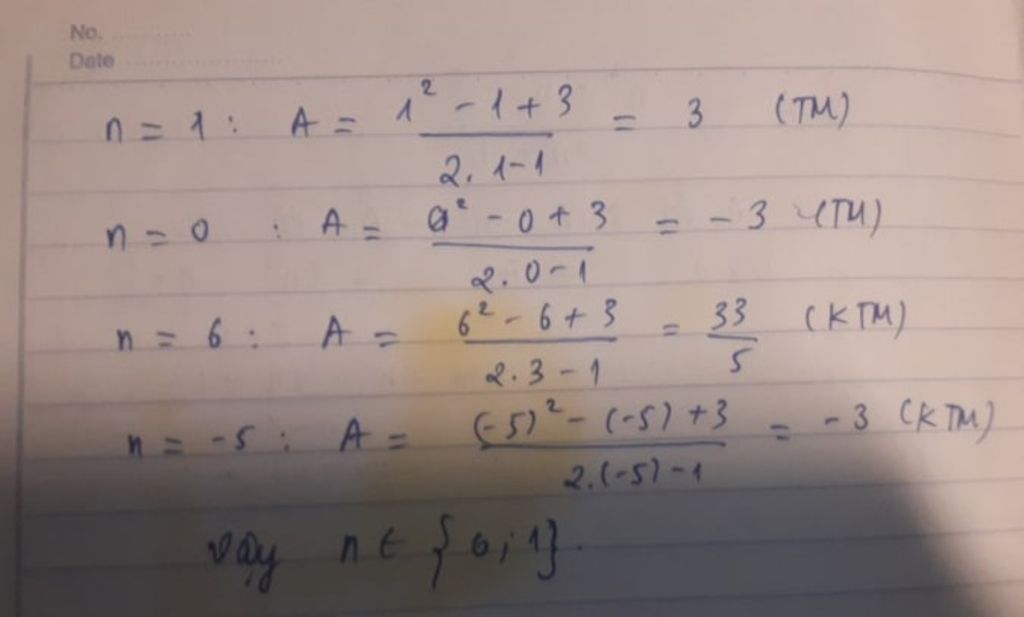 No. ............
Date ........................
n = 1 : A = (1² - 1 + 3)/(2. 1 - 1) = 3 (TM)
n = 0 : A = (0² - 0 + 3)/(2. 0 - 1) = - 3 (TM)
n = 6 : A = (6² - 6 + 3)/(2.3 - 1) = 33/5 (KTM)
n = -5 : A = ((-5)² - (-5) + 3)/(2.(-5) - 1) = - 3 (KTM)
vậy n ∈ {0; 1}.